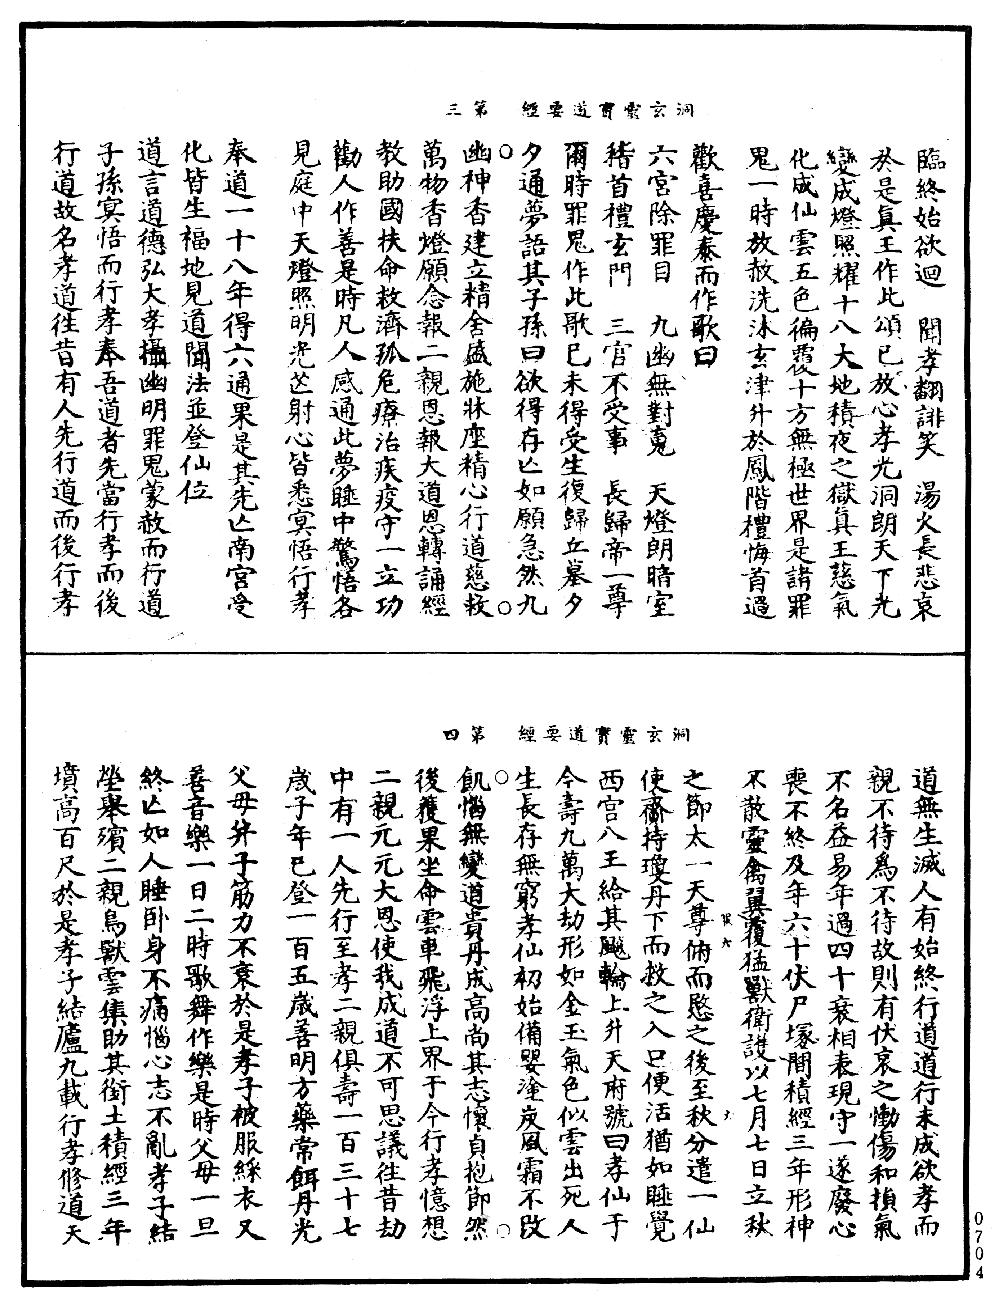 洞玄靈寶道要經　第三
臨終始欲迴　聞孝翻誹笑　湯火長悲哀
於是真王作此頌已放心孝光洞朗天下光
變成燈照耀十八大地積夜之獄真王慈氣
化成仙雲五色徧覆十方無極世界是諸罪
鬼一時放赦洗沐玄津升於鳳階禮悔首過
歡喜慶泰而作歌曰
六宮除罪目　九幽無對寃　天燈朗暗室
稽首禮玄門　三官不受事　長歸帝一尊
爾時罪鬼作此歌已未得受生復歸丘墓夕
夕通夢語其子孫曰欲得存亡如願急然九
幽神香建立精舍盛施牀座精心行道慈救
萬物香燈願念報二親恩報大道恩轉誦經
教助國扶命救濟孤危療治疾疫守一立功
勸人作善是時凡人感通此夢睡中驚悟各
見庭中天燈照明光芒射心皆悉冥悟行孝
奉道一十八年得六通果是其先亡南宮受
化皆生福地見道聞法並登仙位
道言道德弘大孝攝幽明罪鬼蒙赦而行道
子孫冥悟而行孝奉吾道者先當行孝而後
行道故名孝道徃昔有人先行道而後行孝
洞玄靈寶道要經　第四
道無生滅人有始終行道道行未成欲孝而
親不待為不待故則有伏哀之慟傷和損氣
不名益易年過四十衰相表現守一遂廢心
喪不終及年六十伏尸塚間積經三年形神
不散靈禽翼覆猛獸衛護以七月七日立秋
之節太一天尊俯而愍之後至秋分遣一仙
使齎持瓊丹下而救之入口便活猶如睡覺
西宮八王給其飈輪上升天府號曰孝仙于
今壽九萬大劫形如金玉氣色似雲出死人
生長存無窮孝仙初始備嬰塗炭風霜不改
飢惱無變道貴丹成高尚其志懷貞抱節然
後獲果坐命雲車飛浮上界于今行孝憶想
二親元元大恩使我成道不可思議徃昔劫
中有一人先行至孝二親俱壽一百三十七
歲子年已登一百五歲善明方藥常餌丹光
父母并子筋力不衰於是孝子被服綵衣又
善音樂一日二時歌舞作樂是時父母一旦
終亡如人睡卧身不痛惱心志不亂孝子結
塋舉殯二親鳥獸雲集助其銜土積經三年
墳高百尺於是孝子結廬九載行孝修道天
0704